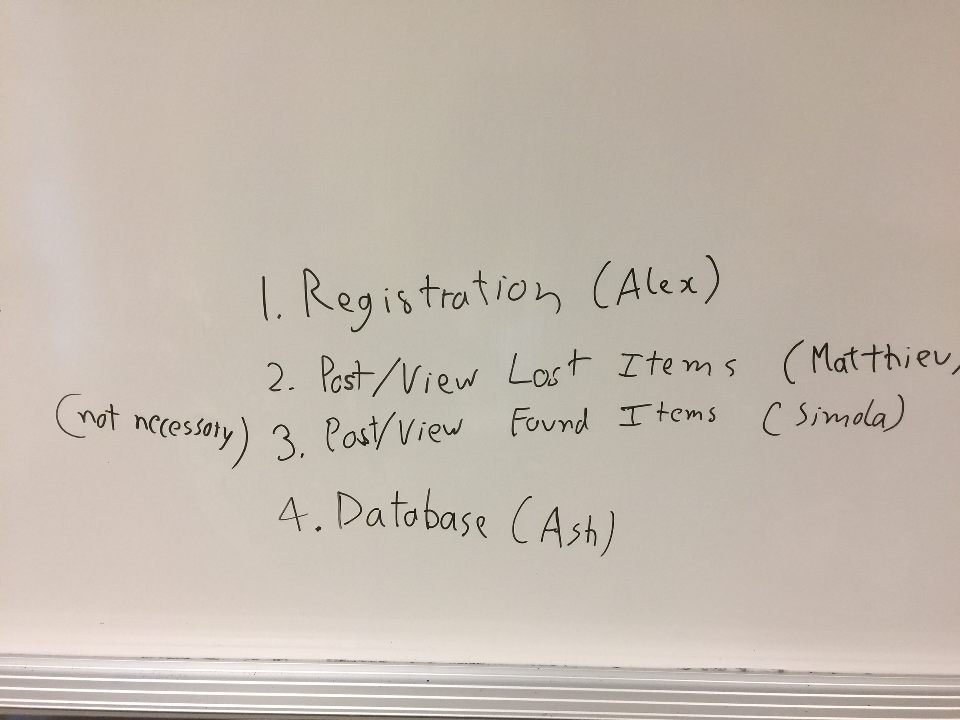 1. Registration (Alex)
2. Post/View Lost Items (Matthieu,
(not necessary) 3. Post/View Found Items (Simola)
4. Database (Ash)